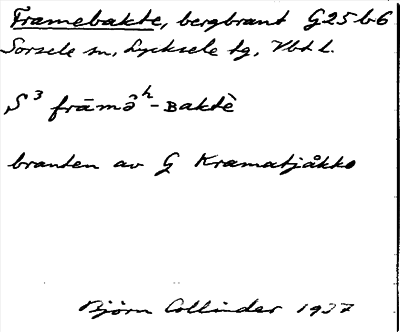 Framebakte, bergbrant G25b6
Sorsele sn, Lycksele tg, Vbt l.
S³ frāmə̂ʰ-Baktè
branten av G Kramatjåkko
Björn Collinder 1937